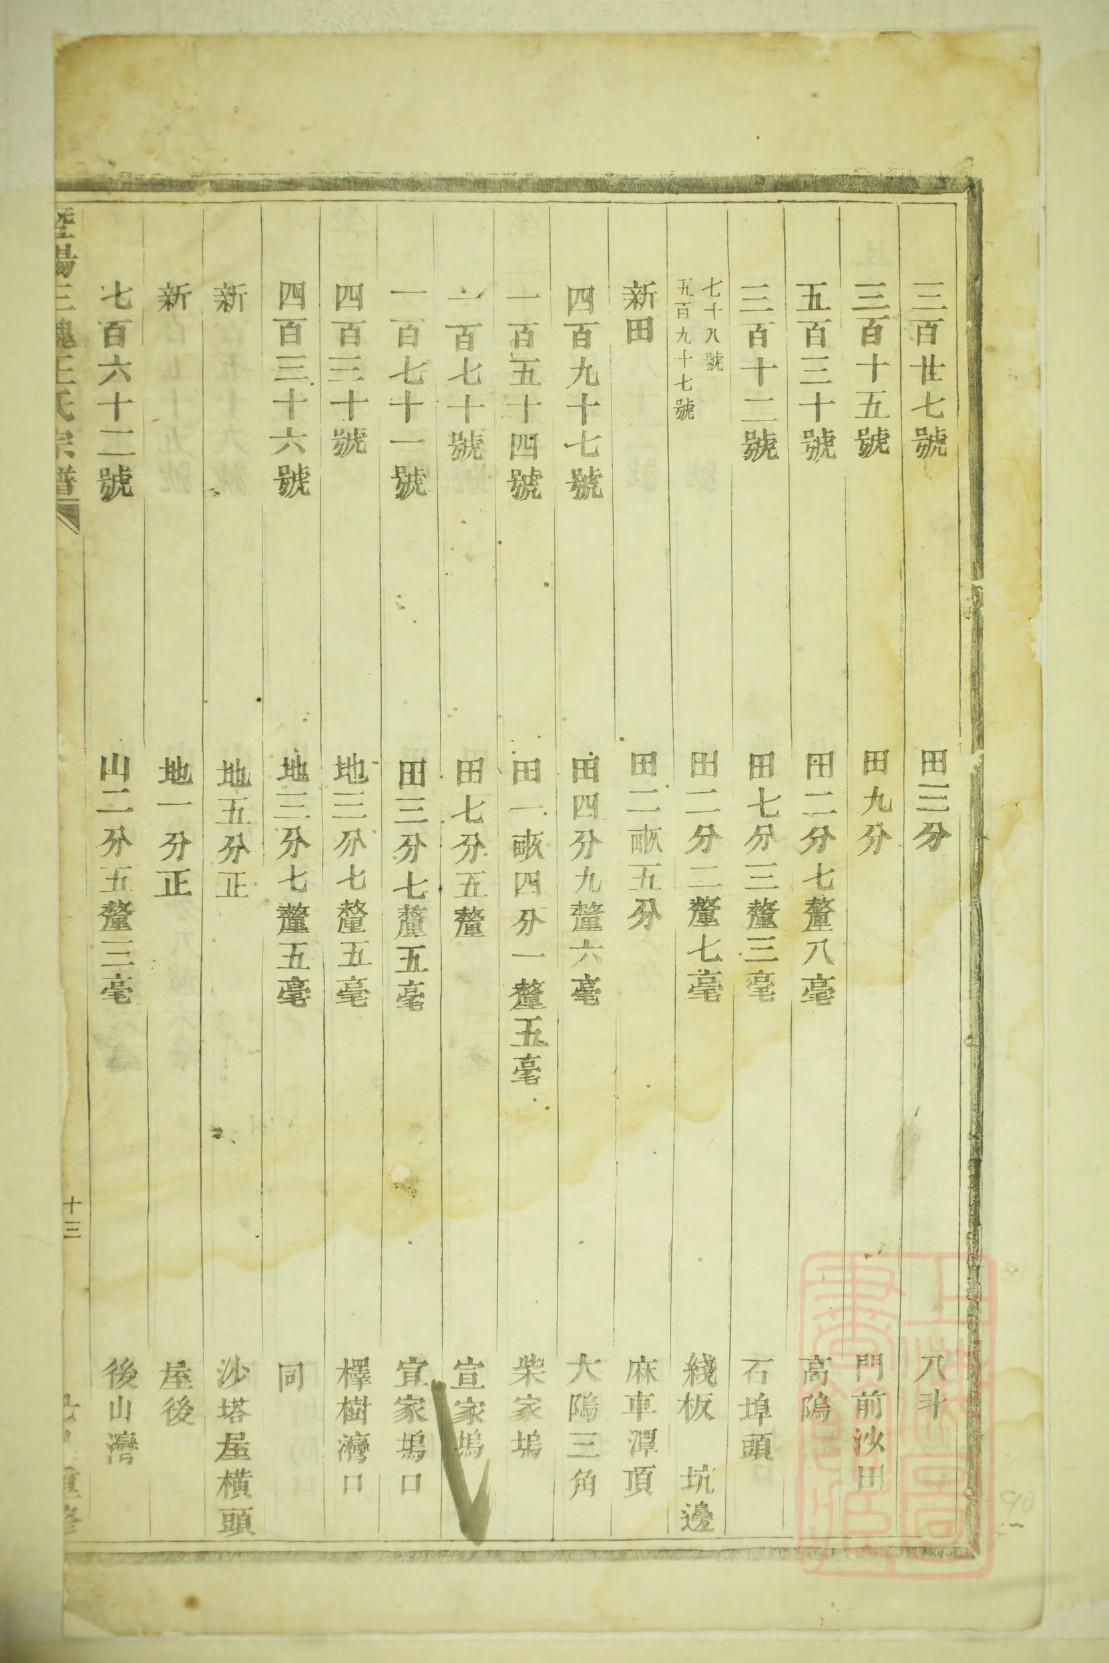 三百廿七號　田三分　八斗
三百十五號　田九分　門前沙田
五百三十號　田二分七釐八毫　高隝
三百十二號　田七分三釐三毫　石埠頭
七十八號
五百九十七號　田二分二釐七毫　綫板　坑邊
新田　田二畝五分　麻車潭頂
四百九十七號　田四分九釐六毫　大隝三角
一百五十四號　田一畝四分一釐五毫　柴家塢
一百七十號　田七分五釐　宣家塢
一百七十一號　田三分七釐五毫　宣家塢口
四百三十號　地三分七釐五毫　檡樹灣口
四百三十六號　地三分七釐五毫　同
新　地五分正　沙塔屋橫頭
新　地一分正　屋後
七百六十二號　山二分五釐三毫　後山灣
暨陽三槐王氏宗譜　十三　重修